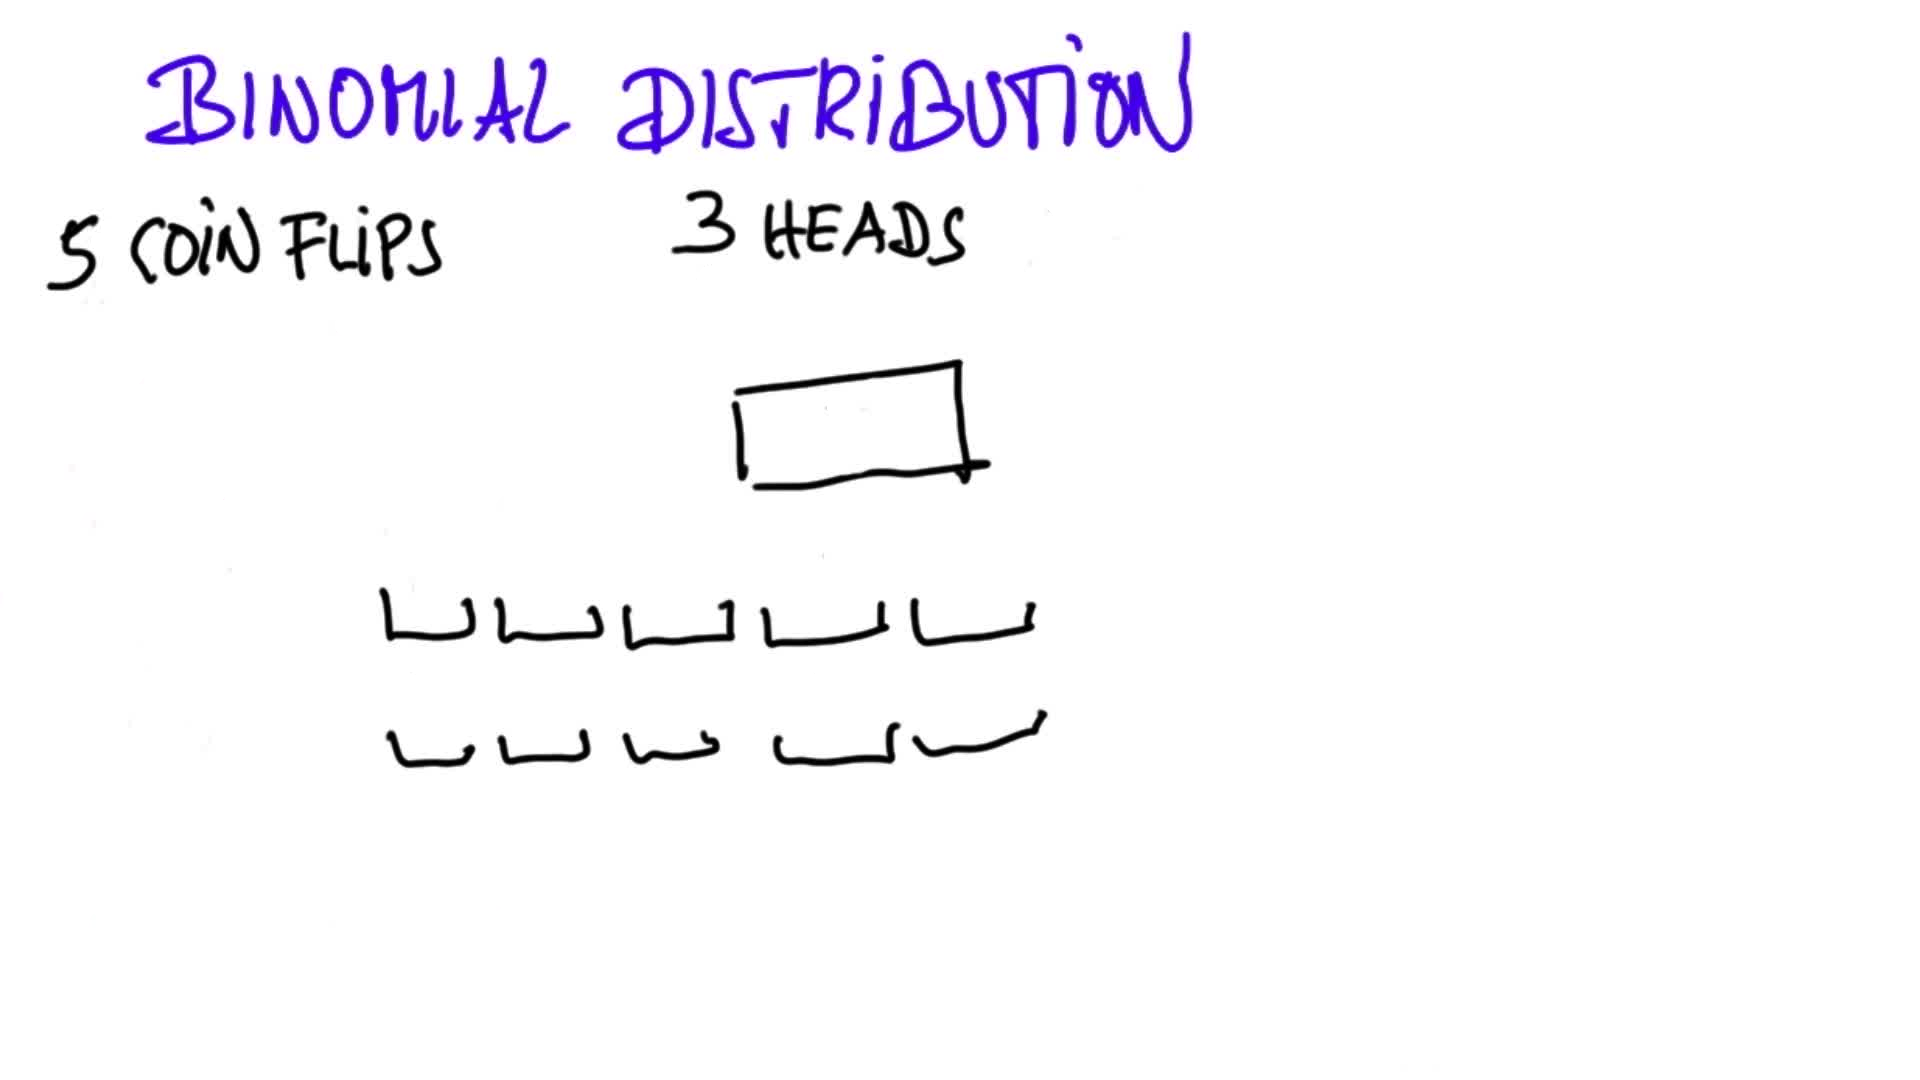 BINOMIAL DISTRIBUTION
5 COIN FLIPS 3 HEADS